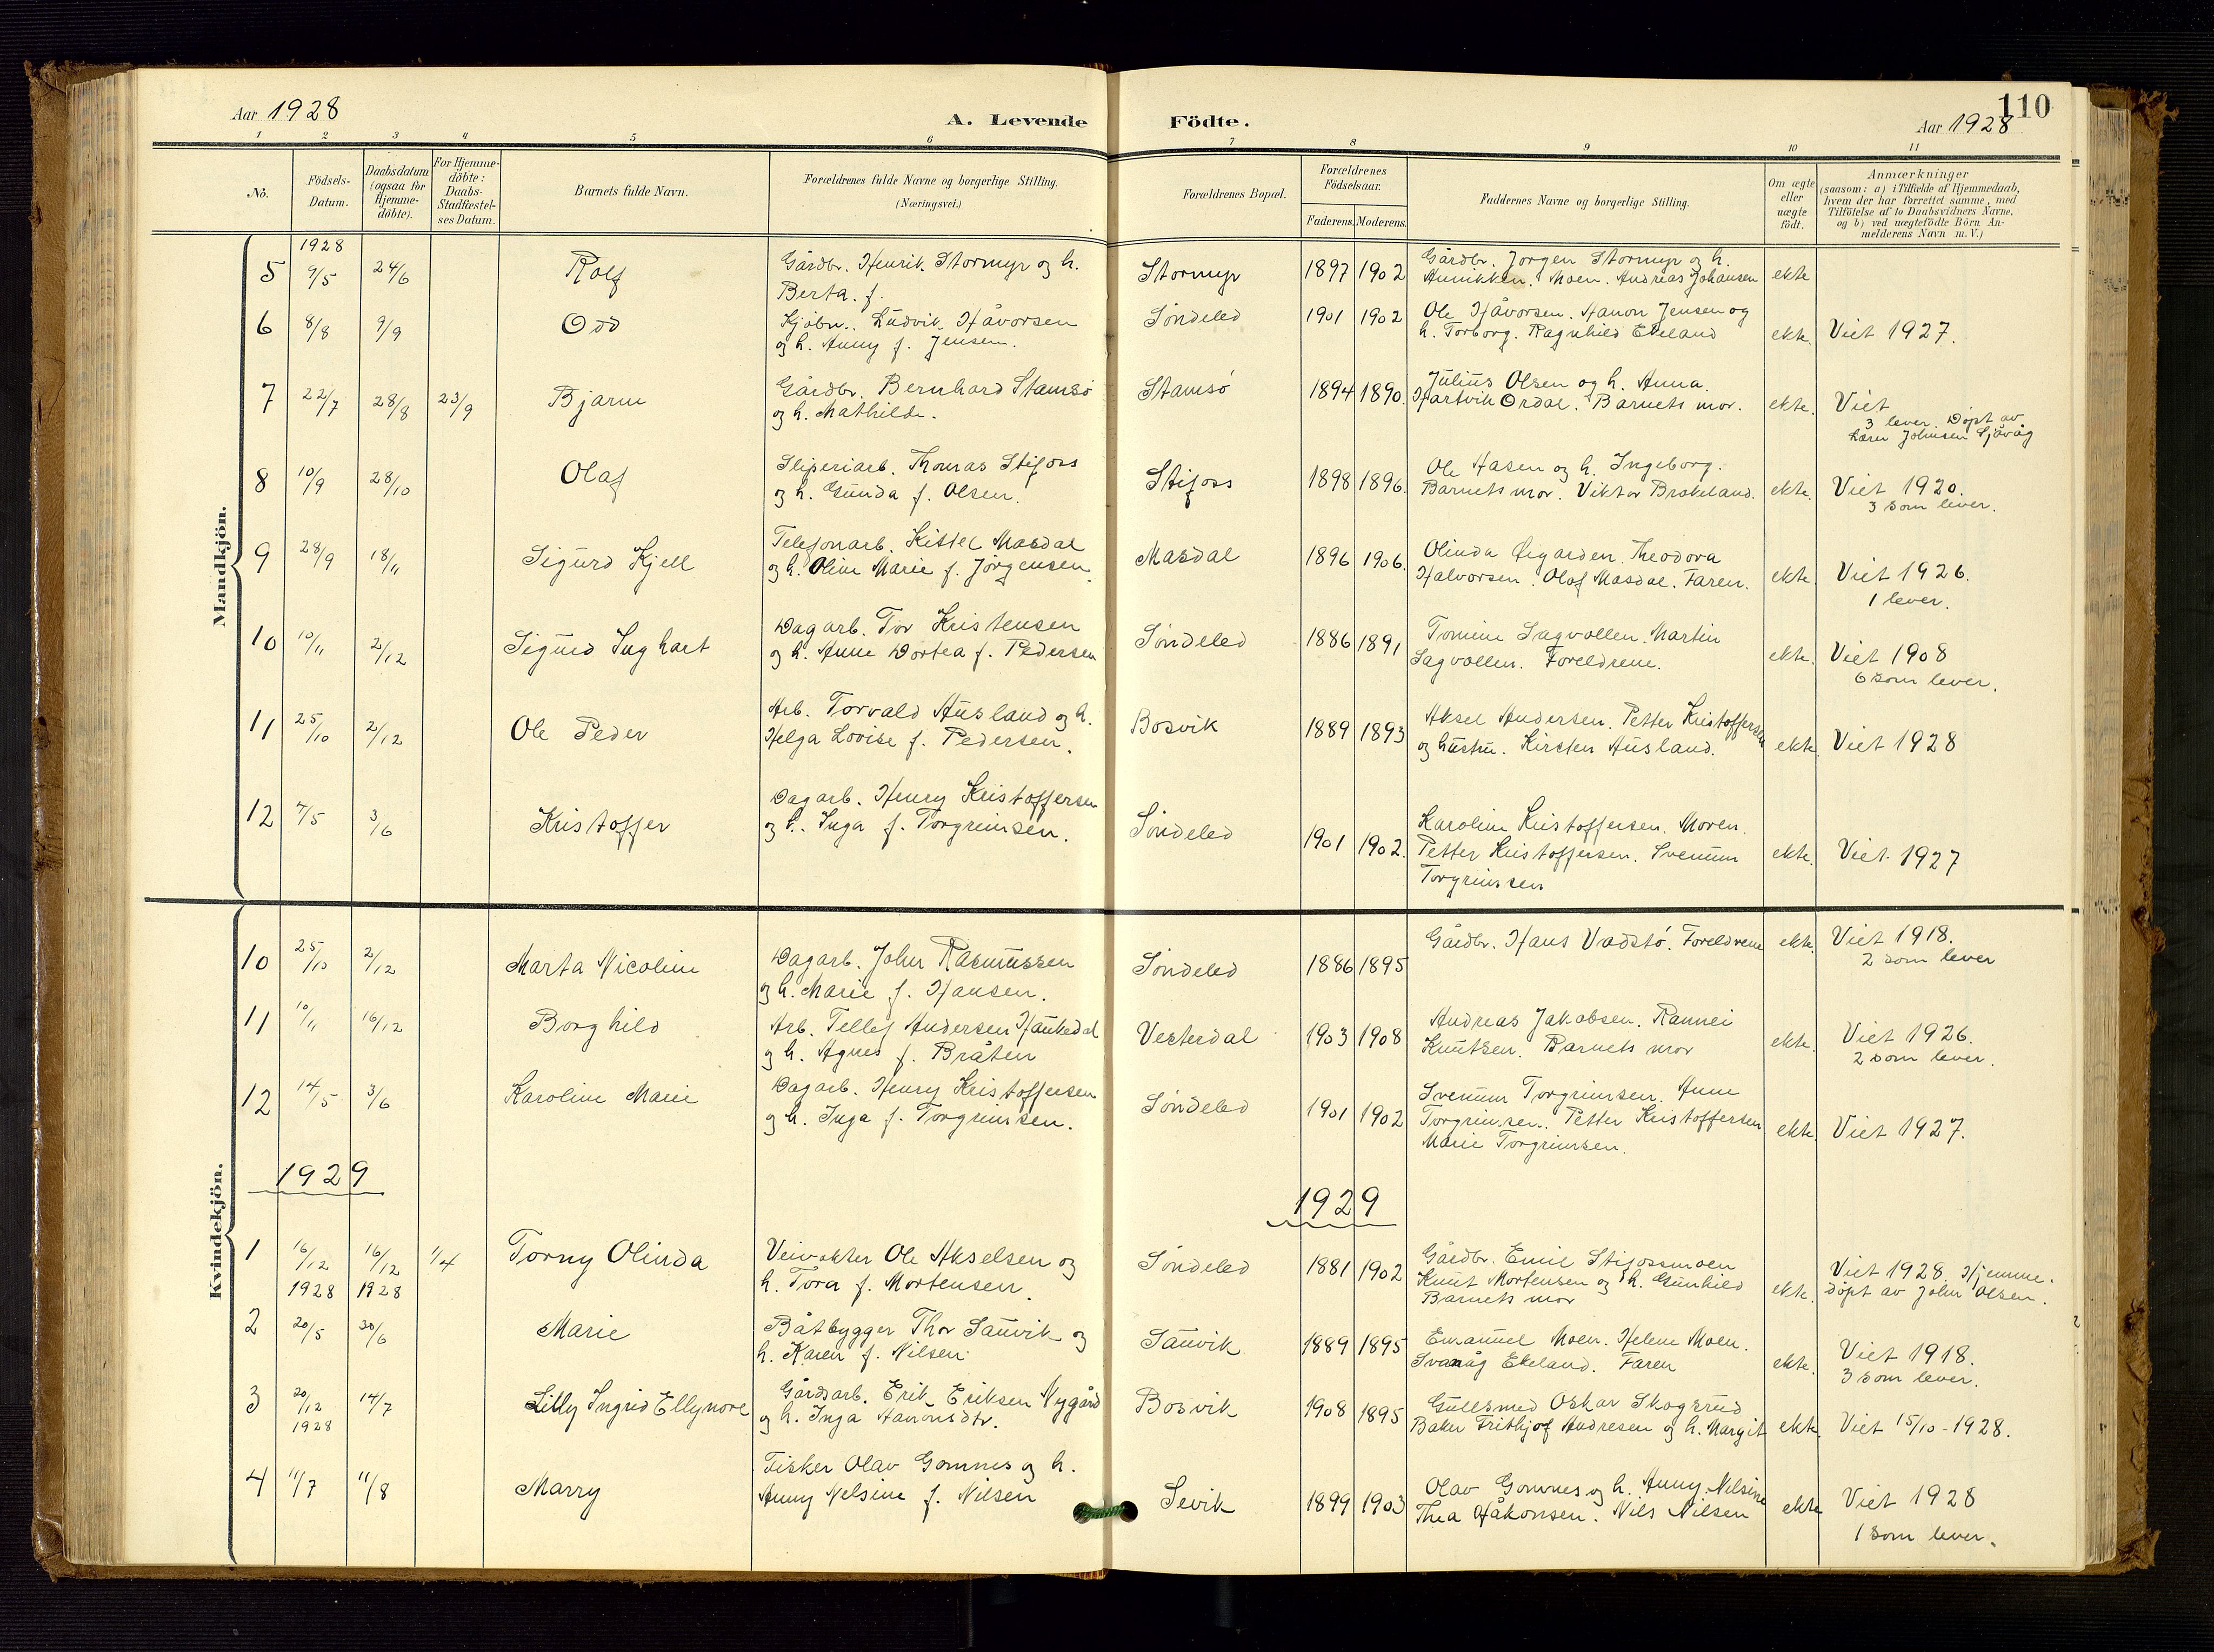 Aar 1928
A. Levende
Födte.
110
Aar 1928
1 2 3 4 5 6 7 8 9 10 11
No.
Födsels-
Datum.
Daabsdatum
(ogsaa for
Hjemme-
döbte).
For Hjemme-
döbte:
Daabs-
Stadfæstel-
ses Datum.
Barnets fulde Navn.
Forældrenes fulde Navne og borgerlige Stilling.
(Næringsvei.)
Forældrenes Bopæl.
Forældrenes
Födselsaar.
Faderens. Moderens.
Faddernes Navne og borgerlige Stilling.
Om ægte
eller
uægte
födt.
Anmærkninger
(saasom: a) i Tilfælde af Hjemmedaab,
hvem der har forrettet samme, med
Tilföielse af to Daabsvidners Navne,
og b) ved uægtefödte Börn An-
melderens Navn m. V.)
Mandkjön.
1928
5 9/5 24/6 Rolf
Gårdbr. Henrik Stormyr og h.
Berta. f.
Stormyr 1897 1902
Gårdbr. Jørgen Stormyr og h.
Annikken. Moen. Andreas Johansen
ekte
6 8/8 9/9 Odd
Kjøbm. Ludvik Håvorsen
og h. Anny f. Jensen.
Søndeled 1901 1902
Ole Håvorsen. Hanon Jensen og
h. Torborg. Ragnhild Ekeland
ekte. Viet 1927.
7 22/7 28/8 23/9 Bjarne
Gårdbr. Bernhard Stamsø
og h. Mathilde.
Stamsø 1894 1890.
Julius Olsen og h. Anna.
Hartvik Ordal. Barnets mor.
ekte. Viet
3 lever. Døpt av
Lærer Johnsen Sjåvåg
8 10/9 28/10 Olaf
Sliperiarb. Thomas Stifoss
og h. Gunda f. Olsen.
Stifoss 1898 1896.
Ole Aasen og h. Ingeborg.
Barnets mor. Viktor Brokeland.
ekte. Viet 1920.
3 som lever.
9 28/9 18/11 Sigurd Kjell
Telefonarb. Kittel Masdal
og h. Oline Marie f. Jørgensen.
Masdal 1896 1906.
Olinda Øigarden. Theodora
Halvorsen. Olaf Masdal. Faren.
ekte. Viet 1926.
1 lever.
10 10/11 2/12 Sigurd Inghart
Dagarb. Tor Kristensen
og h. Anne Dortea f. Pedersen
Søndeled 1886 1891
Tomine Lagvollen. Martin
Lagvollen. Foreldrene.
ekte. Viet 1908
6 som lever.
11 25/10 2/12 Ole Peder
Arb. Torvald Ausland og h.
Helga Lovise f. Pedersen.
Bosvik 1889 1893
Aksel Andersen. Petter Kristoffersen
og hustru. Kirsten Ausland.
ekte Viet 1928
12 7/5 3/6 Kristoffer
Dagarb. Henry Kristoffersen
og h. Inga f. Torgrimsen.
Søndeled 1901 1902.
Karoline Kristoffersen. Moren.
Petter Kristoffersen. Svenum
Torgrimsen
ekte. Viet 1927
Kvindekjön.
10 25/10 2/12 Marta Nicoline
Dagarb. John Rasmussen
og h. Marie f. Hansen.
Søndeled 1886 1895
Gårdbr. Hans Vadstø. Foreldrene
ekte. Viet 1918.
2 som lever
11 10/11 16/12 Borghild
Arb. Tellef Andersen Haukedal
og h. Agnes f. Bråten
Vesterdal 1903 1908
Andreas Jakobsen. Rannei
Knutsen. Barnets mor
ekte. Viet 1926.
2 som lever.
12 14/5 3/6 Karoline Marie
Dagarb. Henry Kristoffersen
og h. Inga f. Torgrimsen.
Søndeled 1901 1902
Svenum Torgrimsen. Anne
Torgrimsen. Petter Kristoffersen
Marie Torgrimsen.
ekte. Viet 1927.
1929
1929
1 16/12 16/12 1/4 Torny Olinda
1928 1928
Veivokter Ole Akselsen og
h. Tora f. Mortensen.
Søndeled 1881 1902
Gårdbr. Emil Stifossmoen
Knut Mortensen og h. Gunhild
Barnets mor
ekte. Viet 1928. Hjemme-
døpt av John Olsen.
2 20/5 30/6 Marie
Båtbygger Thor Sauvik og
h. Karen f. Nilsen
Sauvik 1889 1895
Emanuel Moen. Helene Moen.
Svanåg Ekeland. Faren
ekte. Viet 1918.
3 som lever.
3 20/12 14/7 Lilly Ingrid Ellynore
1928
Gårdsarb. Erik Eriksen Nygård
og h. Inga Aanonsdtr.
Bosvik 1908 1895
Gullsmed Oskar Skogsrud
Baker Frithjof Andresen og h. Margit
ekte. Viet 15/10-1928.
4 11/7 11/8 Marry
Fisker Olav Gomnes og h.
Anny Nelsine f. Nilsen
Sevik 1899 1903
Olav Gomnes og h. Anny Nilsine
Thea Håkonsen. Nils Nilsen
ekte Viet 1928
1 som lever.